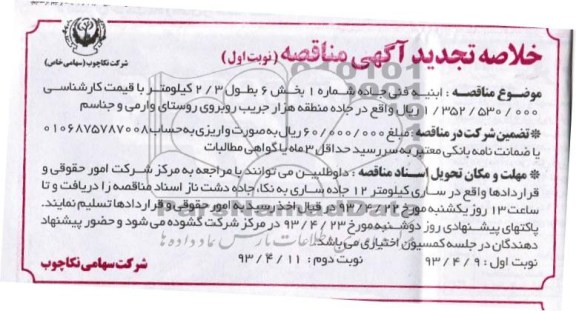 خلاصه تجدید آگهی مناقصه (نوبت اول)
شرکت نکاچوب (سهامی خاص)
موضوع مناقصه : ابنیه فنی جاده شماره ۱ بخش ۶ بطول ۲/۳ کیلومتر با قیمت کارشناسی
۱/۳۵۲/۵۳۰/۰۰۰ ریال واقع در جاده منطقه هزار جریب روبروی روستای وارمی و جناسم
* تضمین شرکت در مناقصه : مبلغ ۶۰/۰۰۰/۰۰۰ ریال به صورت واریزی به حساب ۰۱۰۶۸۷۵۷۸۷۰۰۸
یا ضمانت نامه بانکی معتبر به سررسید حداقل ۳ ماه یا گواهی مطالبات
* مهلت و مکان تحویل اسناد مناقصه : داوطلبین می توانند با مراجعه به مرکز شرکت امور حقوقی و
قراردادها واقع در ساری کیلومتر ۱۲ جاده ساری به نکا، جاده دشت ناز اسناد مناقصه را دریافت و تا
ساعت ۱۳ روز یکشنبه مورخ ۹۳/۴/۲۲ در قبال اخذ رسید به امور حقوقی و قراردادها تسلیم نمایند.
پاکتهای پیشنهادی روز دوشنبه مورخ ۹۳/۴/۲۳ در مرکز شرکت گشوده می شود و حضور پیشنهاد
دهندگان در جلسه کمسیون اختیاری می باشد.
نوبت اول : ۹۳/۴/۹ نوبت دوم : ۹۳/۴/۱۱
شرکت سهامی نکاچوب
ParsNamadData